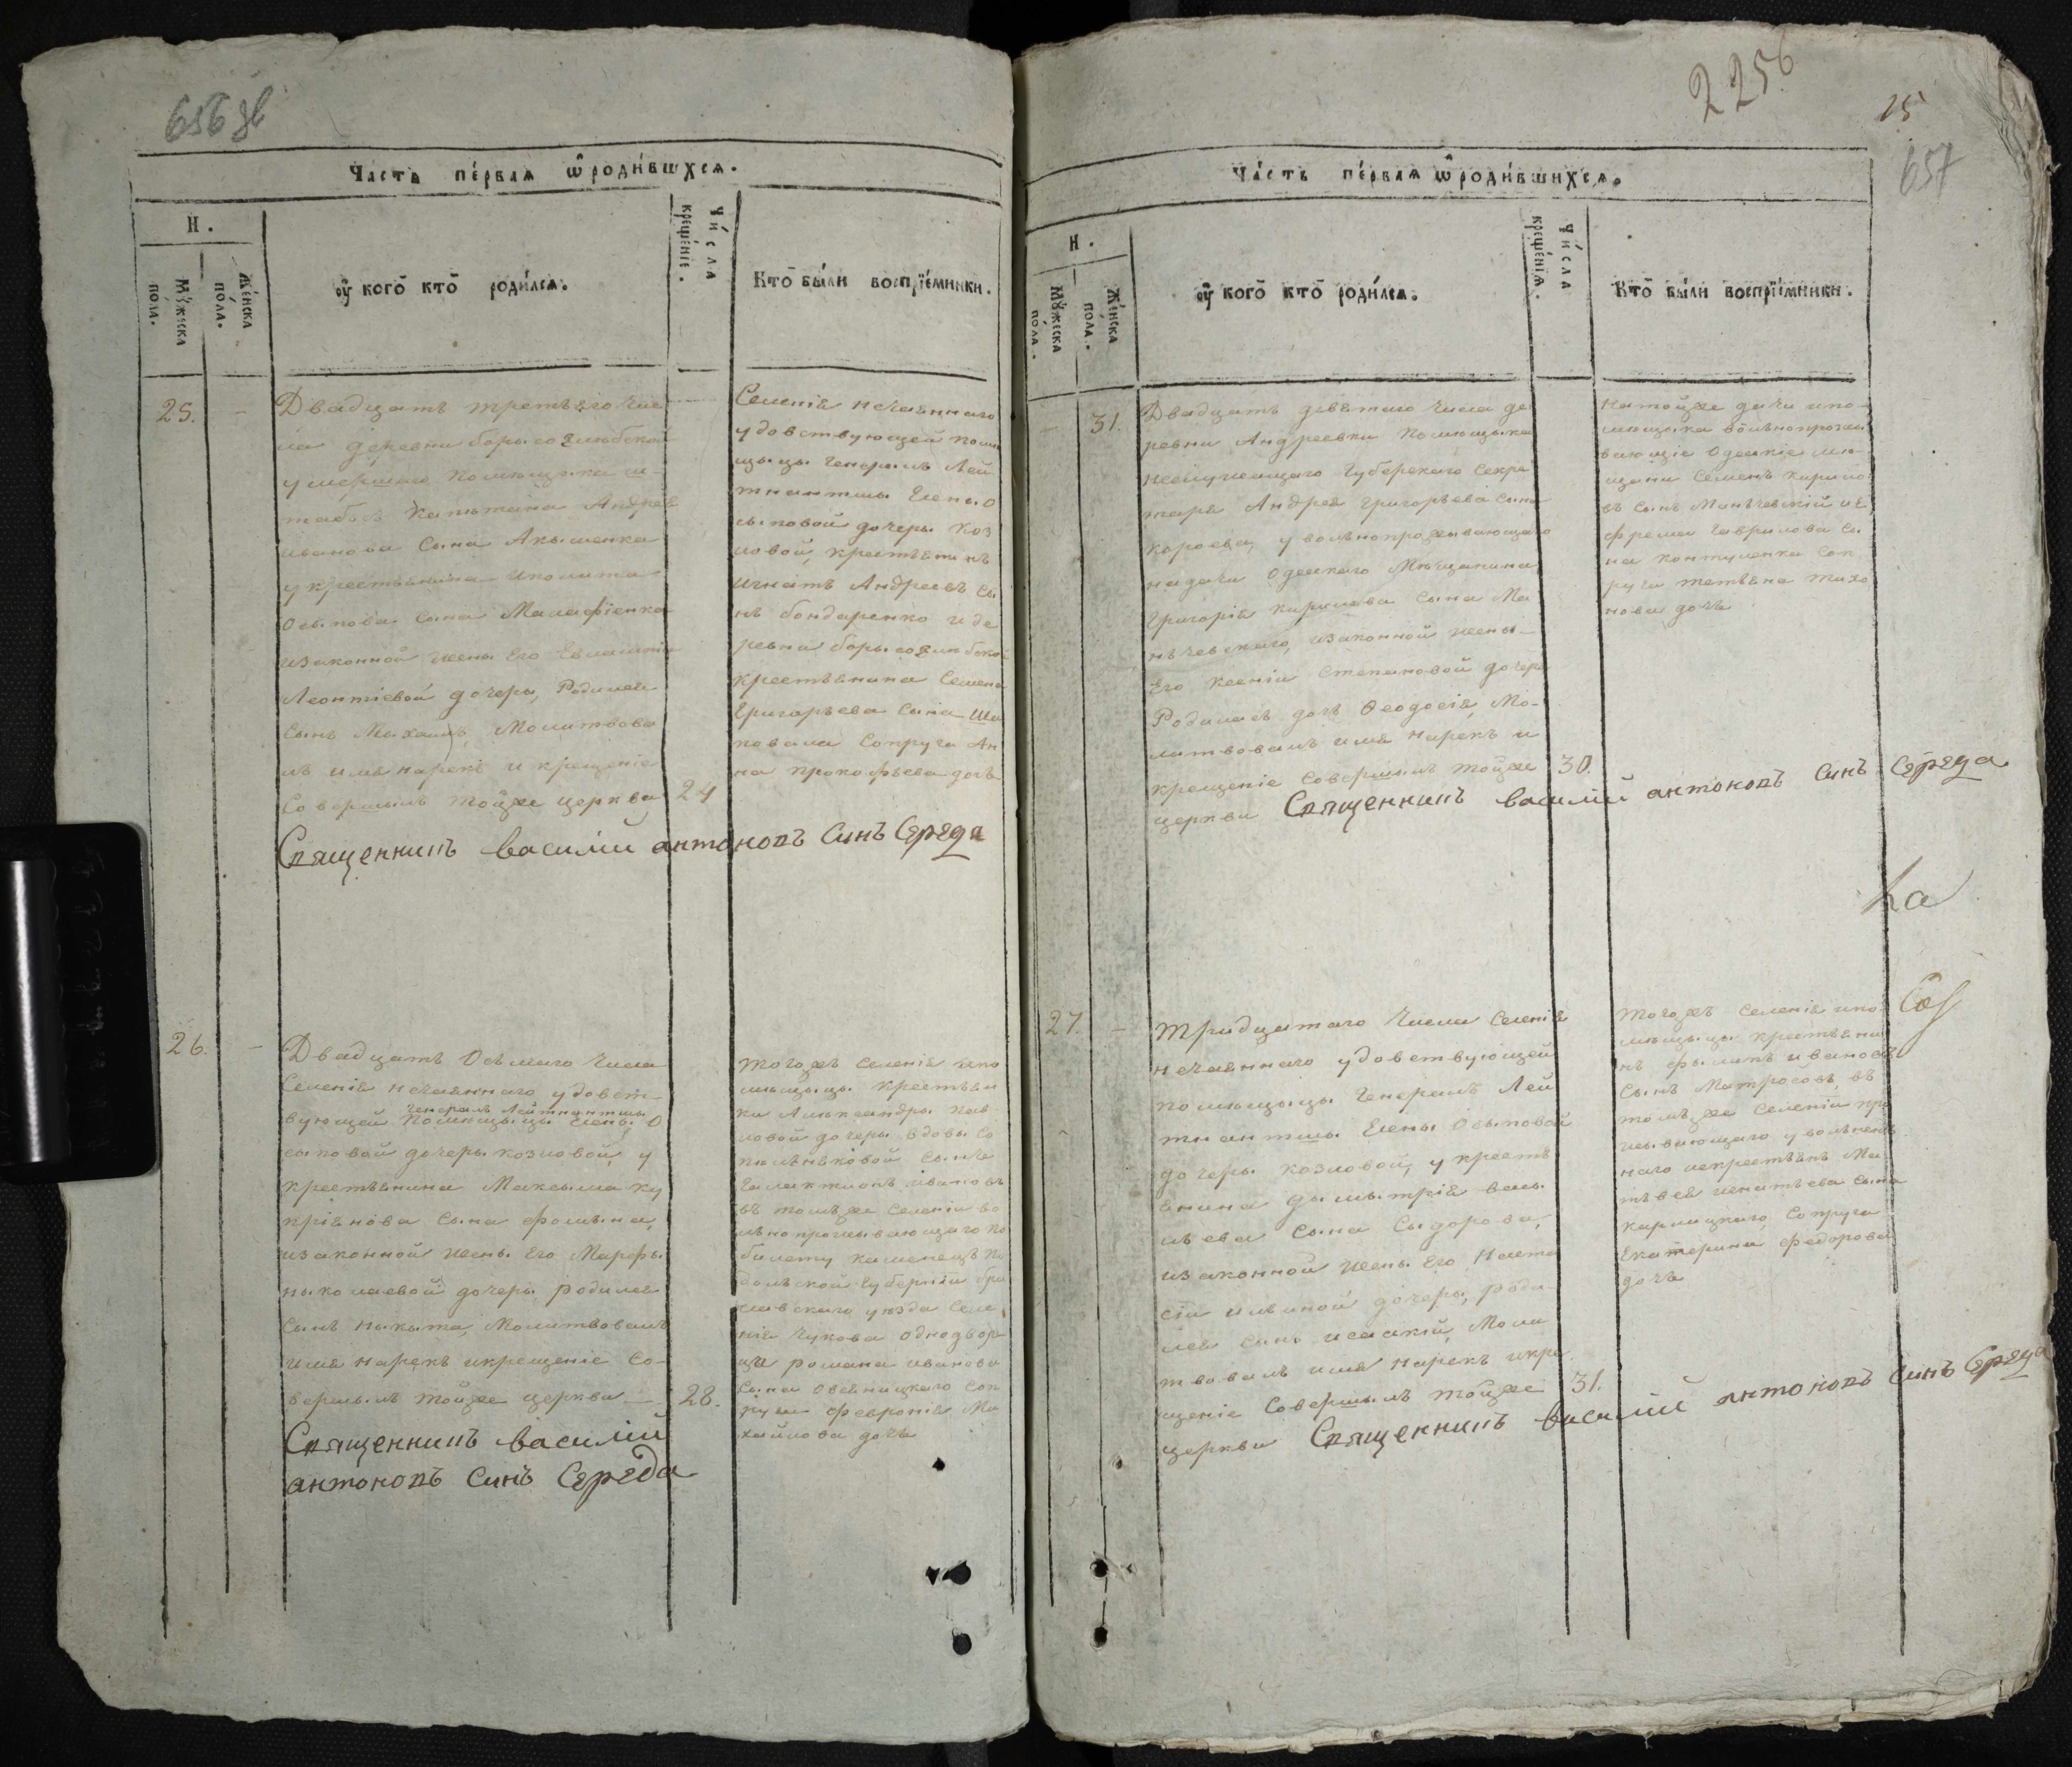 656 зв
Часть пе́рвая ѡ҆ роди́вшихся.
Н.
Мꙋ́жеска
по́ла.
Же́нска
по́ла.
оу҆ кого̀ кто̀ роди́лся.
Чи́сла
креще́нїѧ.
Кто̀ бы́ли воспрїе́мники.
25.
Двадцать третьего чис
ла деревни борисоглебской
умершаго помещика ш-
табсъ капитана Андрея
иванова сына
у крестьянина иполита
Осыпова сына Малафіенка
изаконной жены Его
Леонтіевой дочеры, Родился
Сынъ Михаилъ, Молитвова
лъ имя нарекъ и крещеніе
Совершилъ тойже церквы
24
Селенія нечаяннаго
удовствующей помѣ
щыцы Генералъ Лей
тнантшы Елены О
сыповой дочеры Коз
ловой, крестьянинъ
Игнатъ Андреевъ сы
нъ бондаренко и де
ревни борисоглебской
крестьянина Семена
Григорьева сына Ша
повала Сопруга Ан
на прокофьева дочь
Священникъ василій антоновъ Синъ Середа
26.
Двадцать Осьмаго числа
Селенія нечаяннаго удовст-
Генералъ Лейтнантшы
вующей Помещыцы Елены О
сыповой дочеры козловой, у
крестьянина Максыма ку
пріянова сына фомына,
изаконной жены Его Марфы
ныколаевой дочеры родился
Сынъ ныкыта, Молитвовалъ
имя нарекъ икрещеніе Со-
вершылъ тойже церквы
28.
тогожъ селенія ипо
мещыцы крестьян
ки Александры пав-
ловой дочеры вдовы
сынъ
Галактионъ ивановъ
въ томъже селеніи во
льнопрожывающаго по
билету каменецъ По
дольской Губерніи бра
славскаго уезда Селе
нія Чукова однодвор
ца романа иванова
Сына Сон
руга феврония Ми
хайлова дочь
Священникъ василій
антоновъ Синъ Середа
2256
15
657
Часть пе́рвая ѡ҆ роди́вшихся.
Н.
Мꙋ́жеска
по́ла.
Же́нска
по́ла.
оу҆ кого̀ кто̀ роди́лся.
Чи́сла
креще́нїѧ.
Кто̀ бы́ли воспрїе́мники.
31.
Двадцать девятаго числа де
ревни Андреевки помещыка
неслужащаго Губерскаго Секре
таря Андрея Григорьева сына
у вольнопрожывающаго
надачи Одескаго Мещанина
Григорія Кирилова сына Ма
нъчевскаго, изаконной жены-
Его Ксеніи Степановой дочеры
Родилась дочь Феодосія, Мо-
литвовалъ имя нарекъ и
крещеніе Совершылъ тойже
церквы
30.
Натойже дачи ипо-
мещыка вольнопрожы
вающіе Одескіе ме-
щани Семенъ Кирило
въ сынъ Манъчевскій и Е
фрема Гаврилова сы
на Сон
руга татьяна тихо
нова дочь
Священникъ василій антоновъ Синъ Середа
Ка
27.
Тридцатаго числа селенія
нечаяннаго удовствующей
помещыцы Генералъ Лей
тнантшы Елены Осыповой
дочеры козловой, у кресть
янина Дымытрія васы
льева сына Сыдорова,
изаконной жены Его Наста
сіи ильиной дочеры, роди
лся сынъ исаакій, Моли
твовалъ имя нарекъ икре
щеніе Совершылъ тойже
церквы
31.
Тогожъ селенія ипо
мещыцы крестьяни
нъ фылипъ ивановъ
Сынъ Матросовъ, въ
томъже селеніи про
жывающаго
наго искрестьянъ Ма
твея игнатьева сына
Сопруга
Екатерина федорова
дочь
Священникъ василій антоновъ Синъ Середа